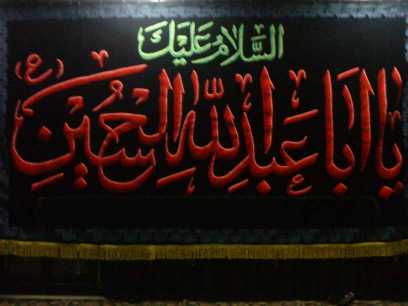 السلام علیک
یا ابا عبدالله الحسین (ع)